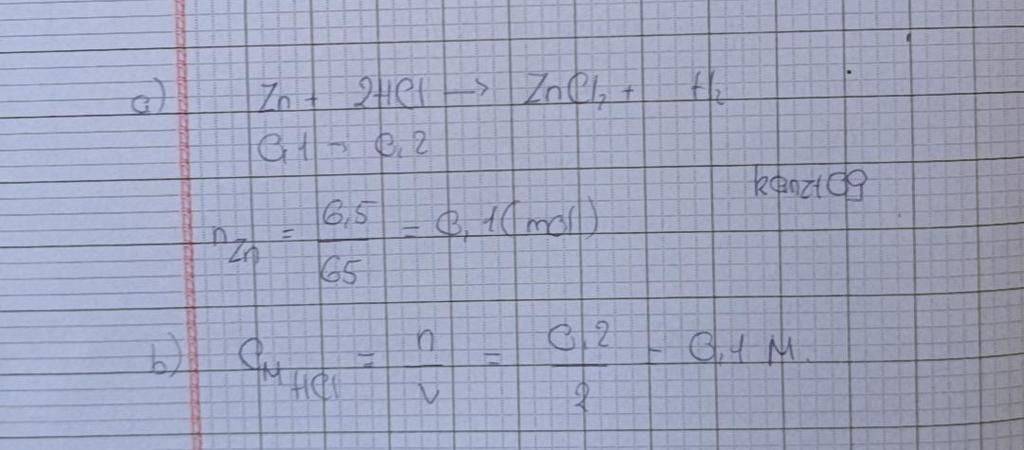 a) Zn + 2HCl → ZnCl₂ + H₂
0,1 → 0,2
n Zn = 6,5 / 65 = 0,1 (mol)
b) CM HCl = n / V = 0,2 / 2 = 0,1 M.